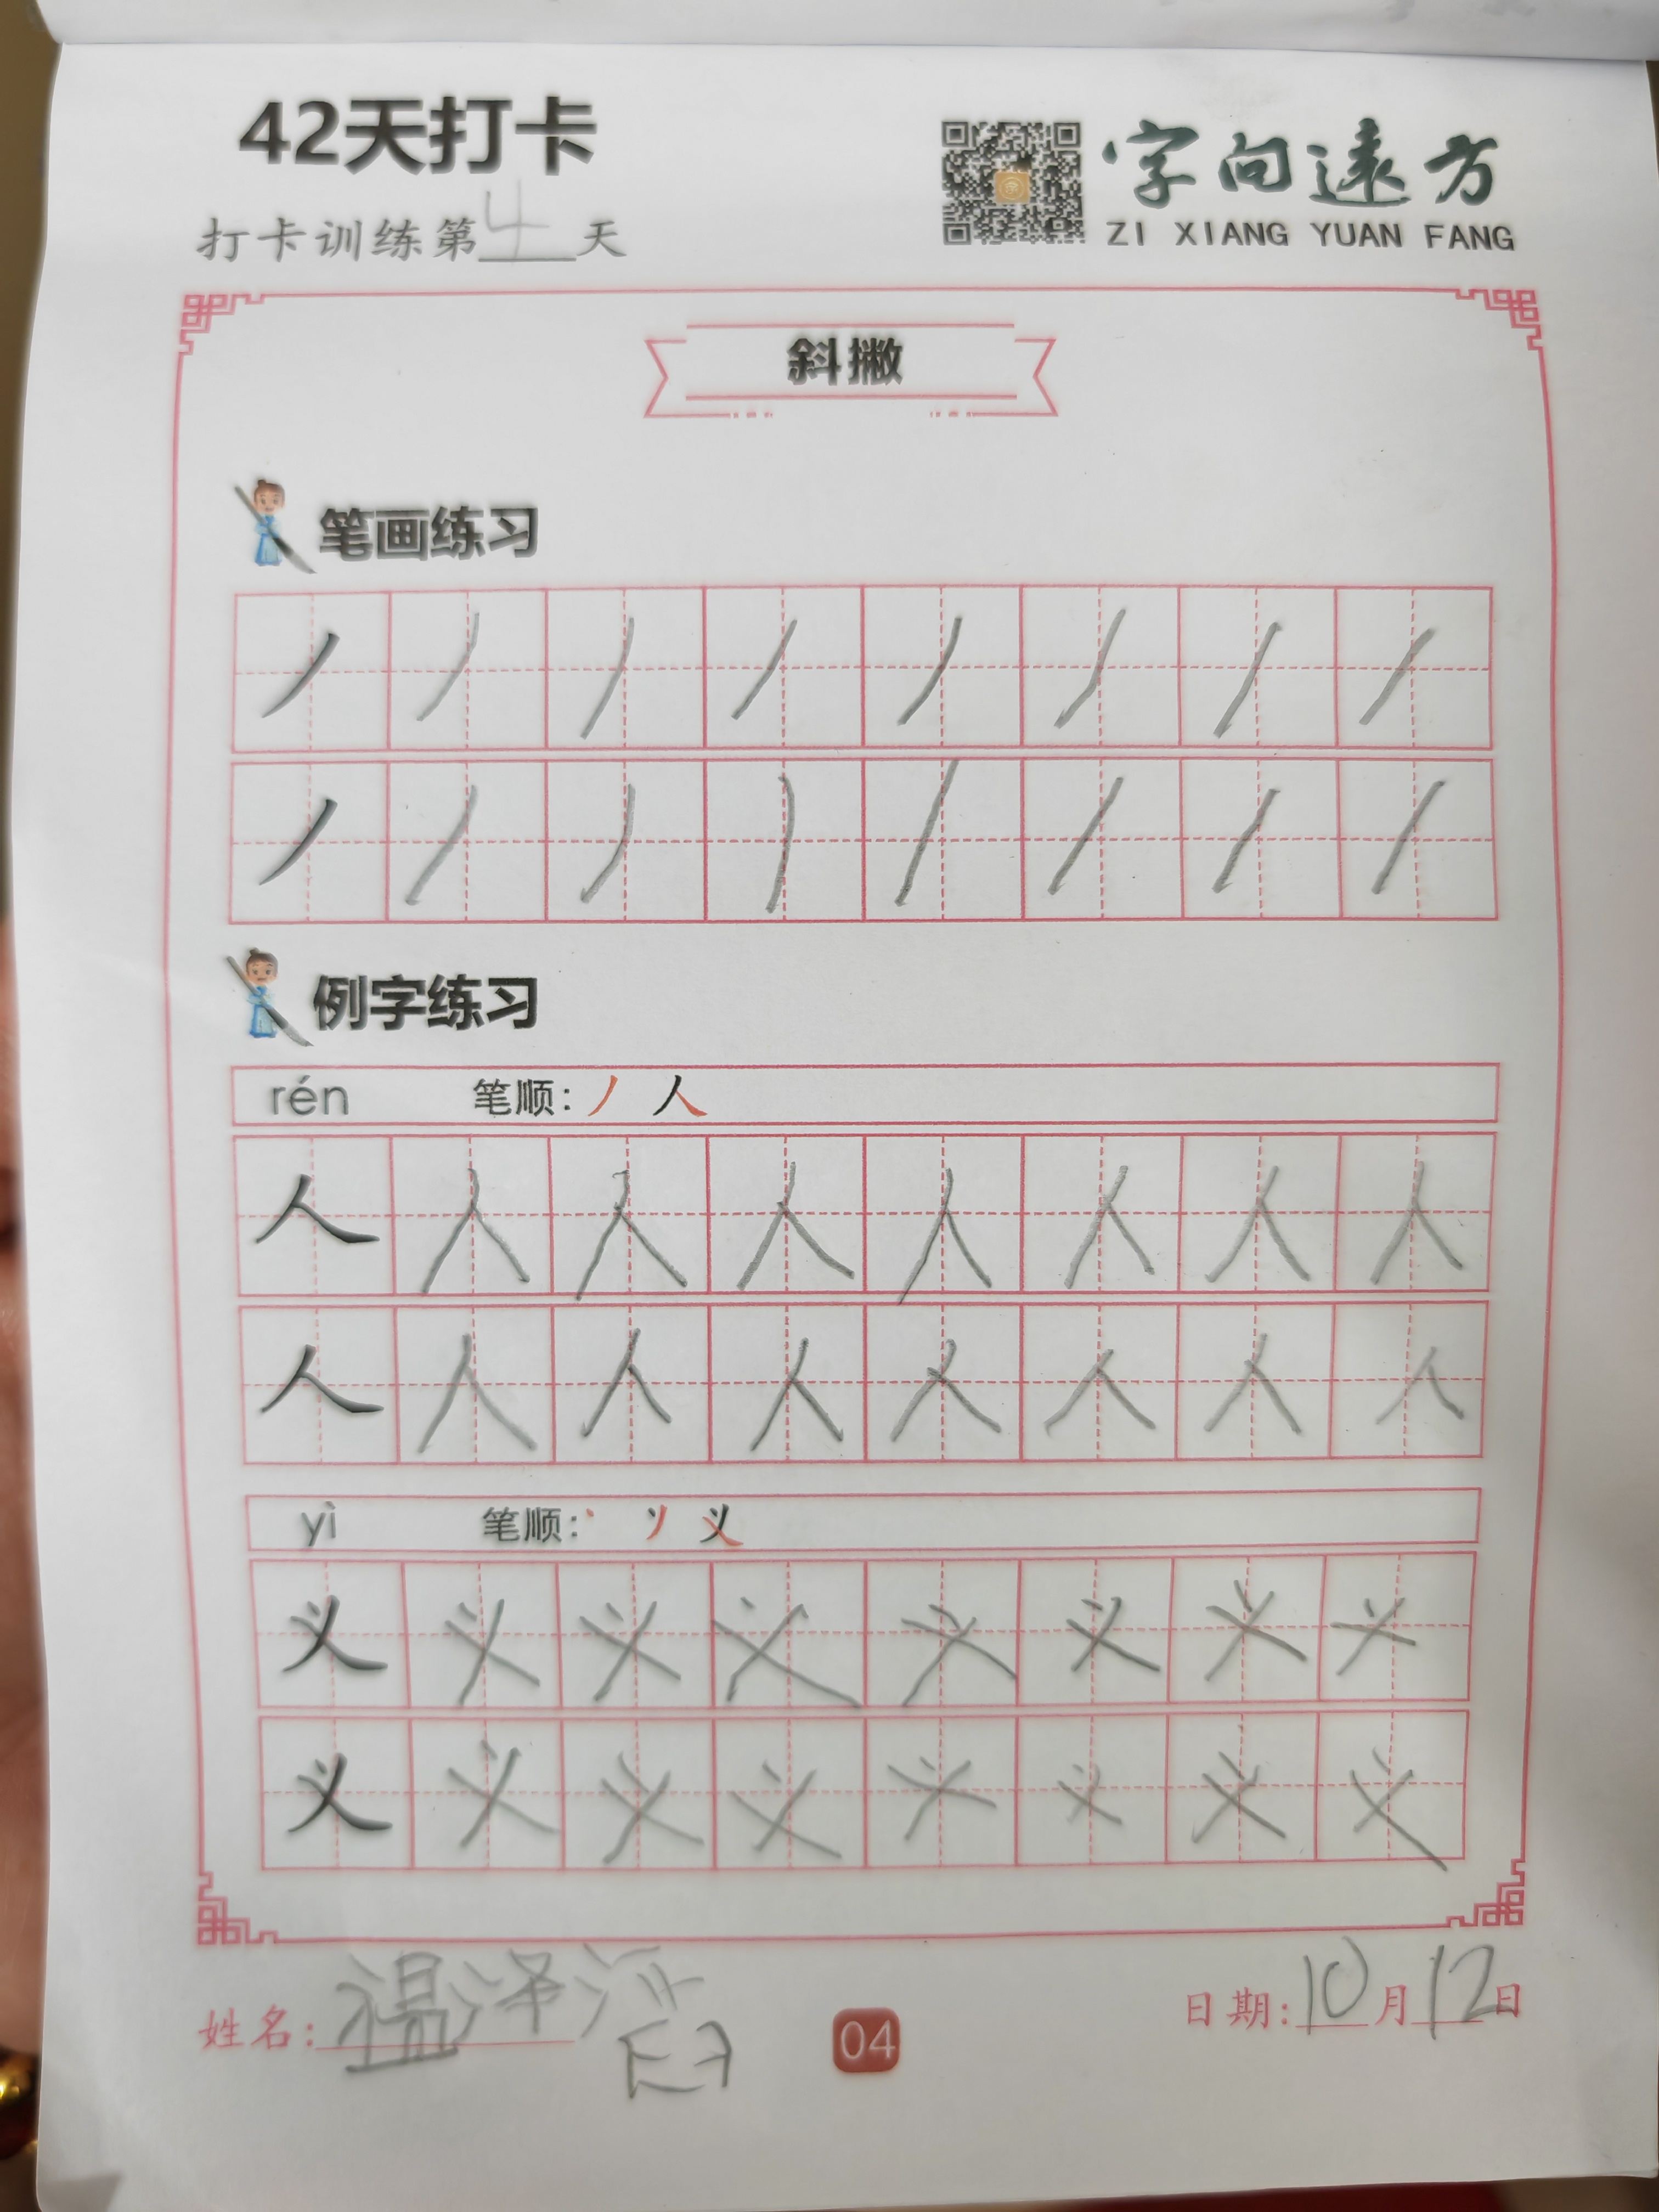 42天打卡
打卡训练第4天
字向遠方
ZI XIANG YUAN FANG
斜撇
笔画练习
丿 丿 丿 丿 丿 丿 丿 丿
丿 丿 丿 丿 丿 丿 丿 丿
例字练习
rén 笔顺: 丿 人
人 人 人 人 人 人 人 人
人 人 人 人 人 人 人 人
yì 笔顺: 丶 丷 义
义 义 义 义 义 义 义 义
义 义 义 义 义 义 义 义
姓名: 温泽
04
日期: 10月12日